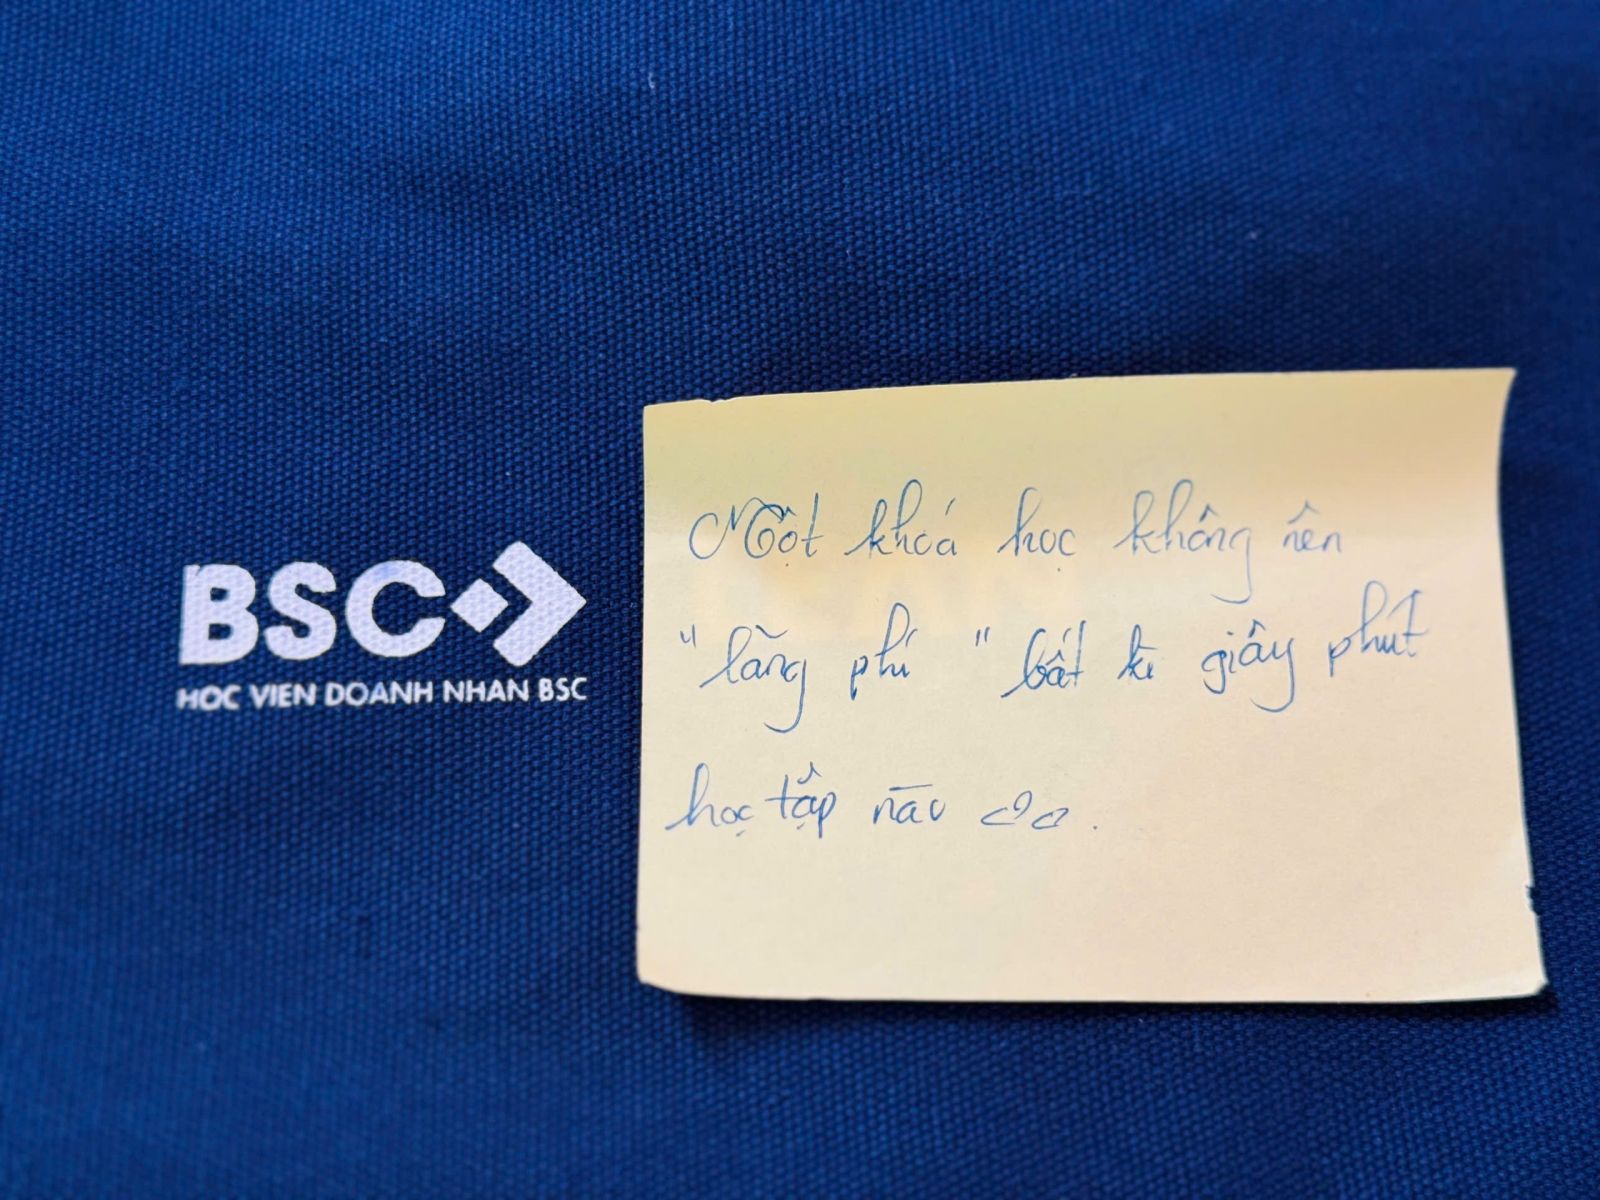 BSC
HOC VIEN DOANH NHAN BSC
Một khoá học không nên
"lãng phí" bất kì giây phút
học tập nào